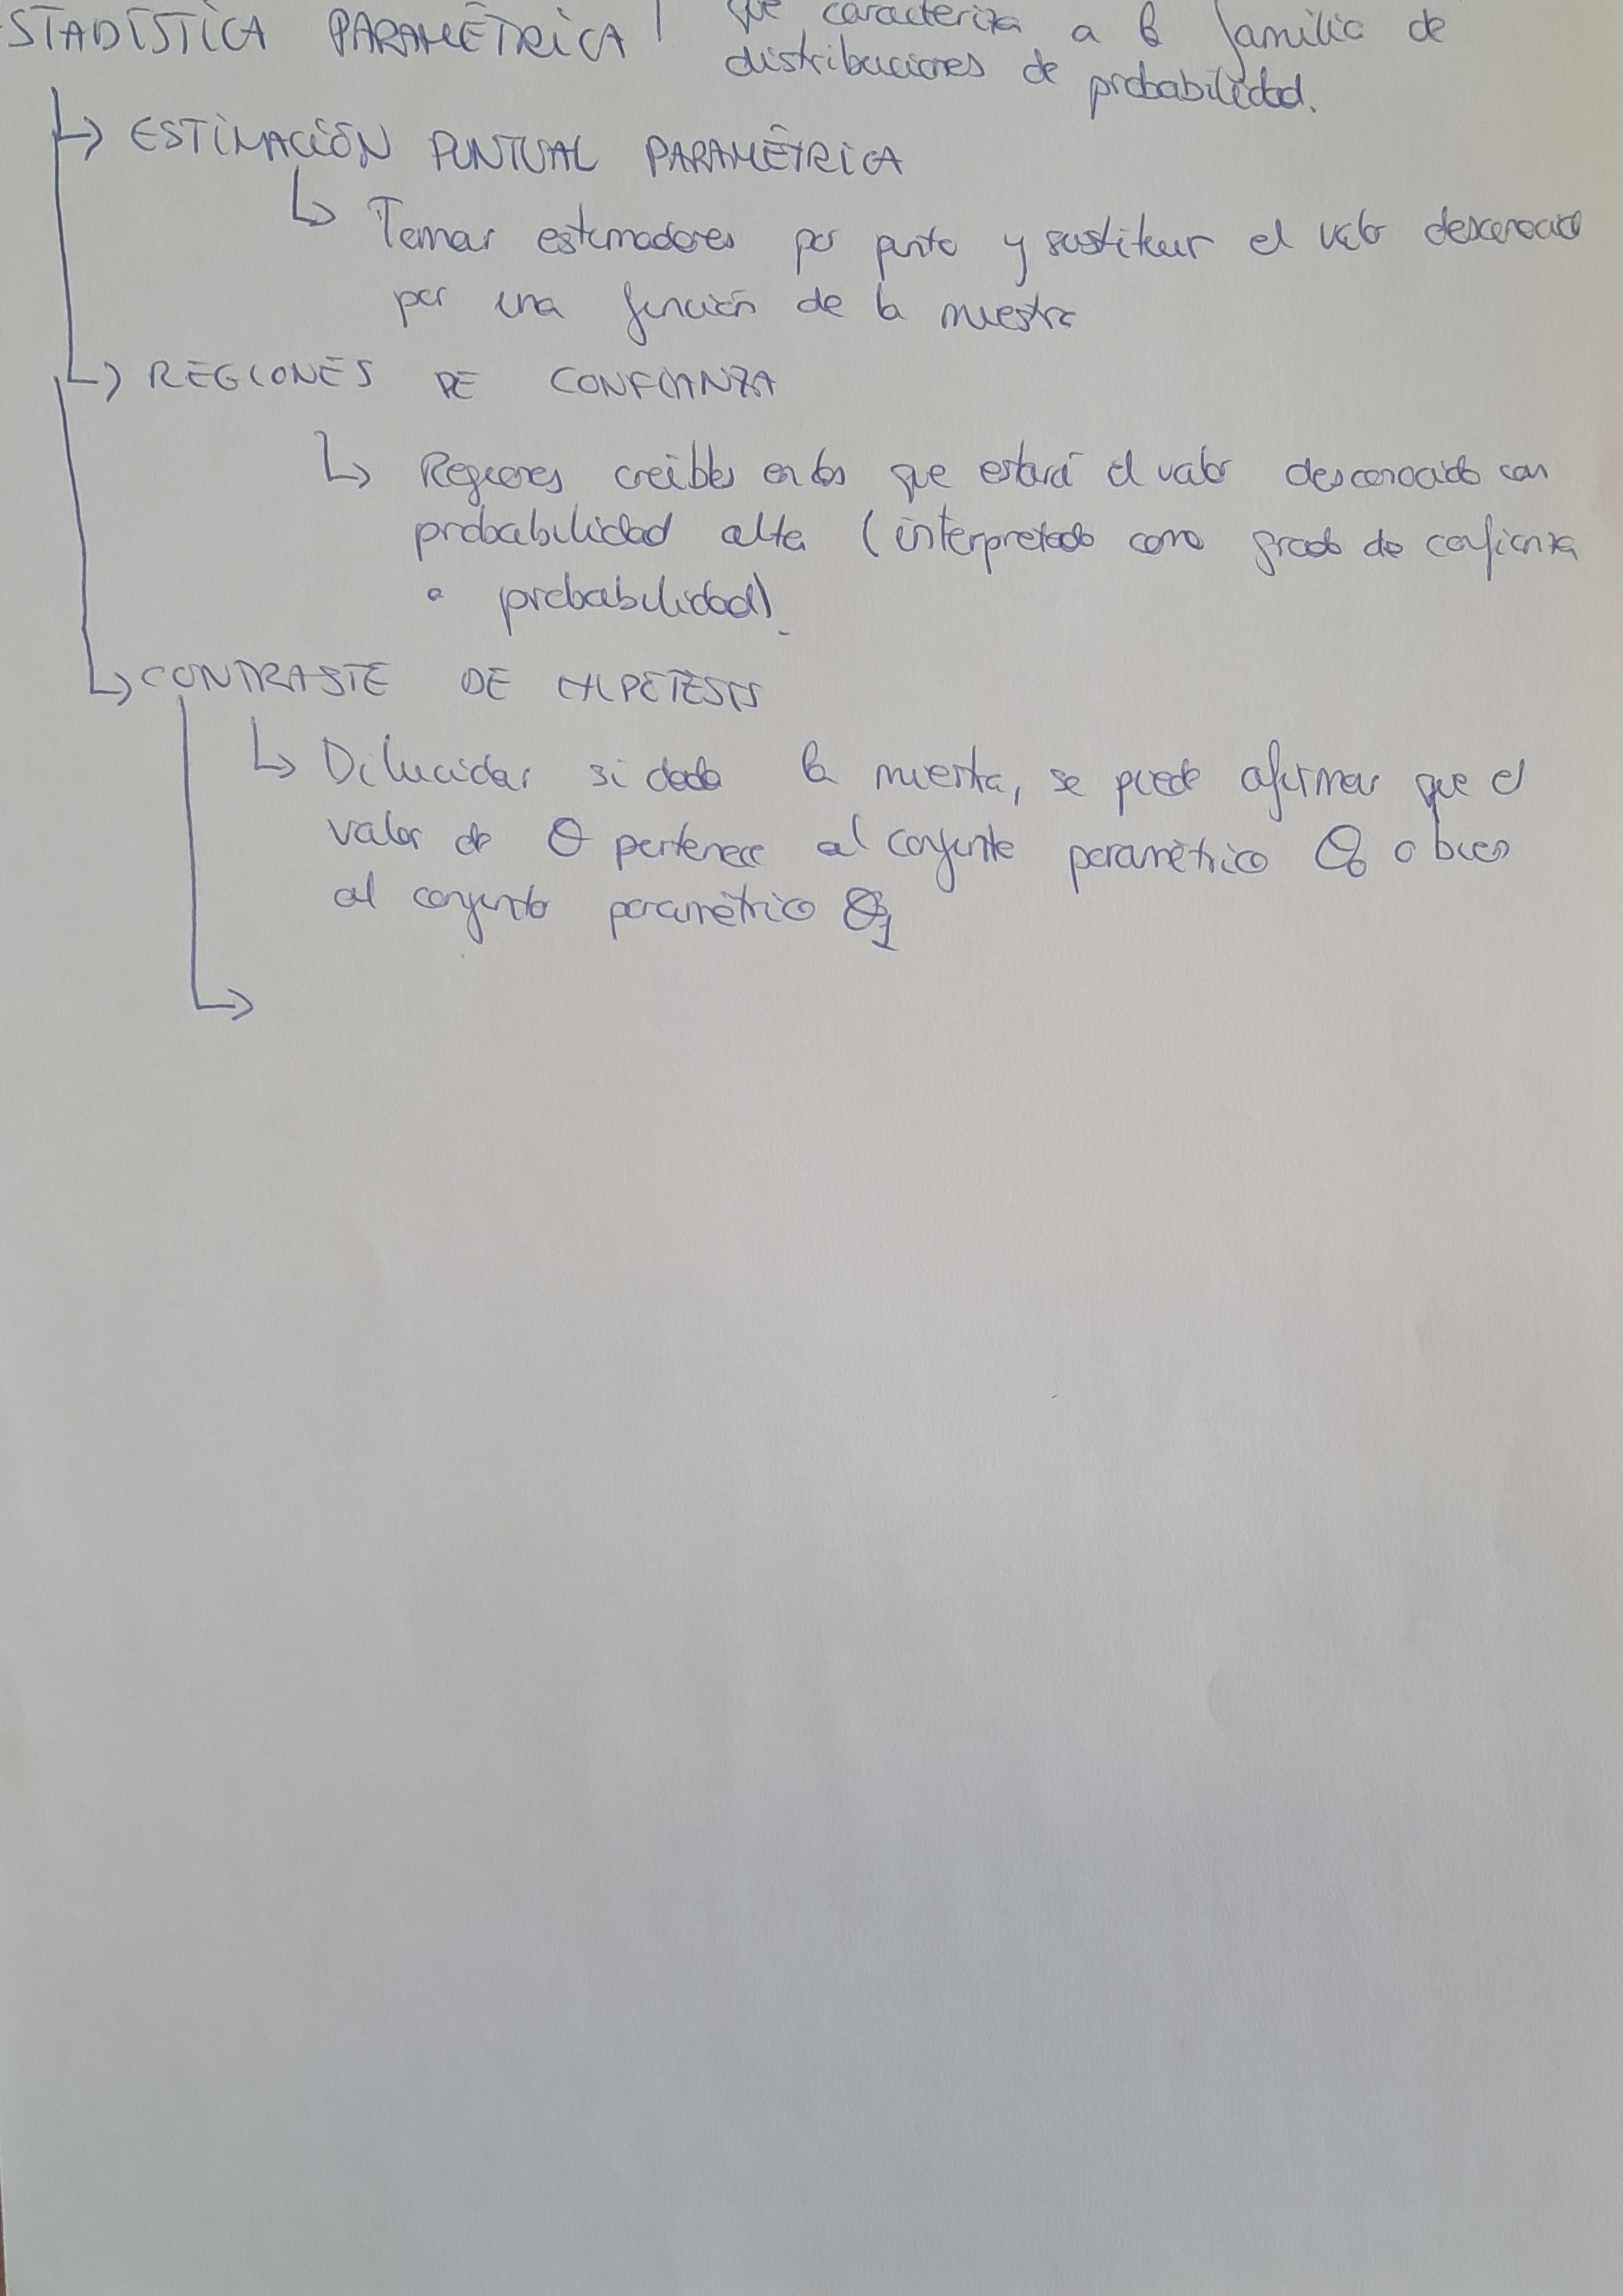 STADÍSTICA PARAMÉTRICA que caracteriza a la familia de
distribuciones de probabilidad.
ESTIMACIÓN PUNTUAL PARAMÉTRICA
Tomar estimadores por punto y sustituir el valor desconocido
por una función de la muestra
REGIONES DE CONFIANZA
Regiones creibles en las que estará el valor desconocido con
probabilidad alta (interpretado como grado de confianza
o probabilidad).
CONTRASTE DE HIPÓTESIS
Dilucidar si dada la muestra, se puede afirmar que el
valor de θ pertenece al conjunto paramétrico Θ₀ o bien
al conjunto paramétrico Θ₁